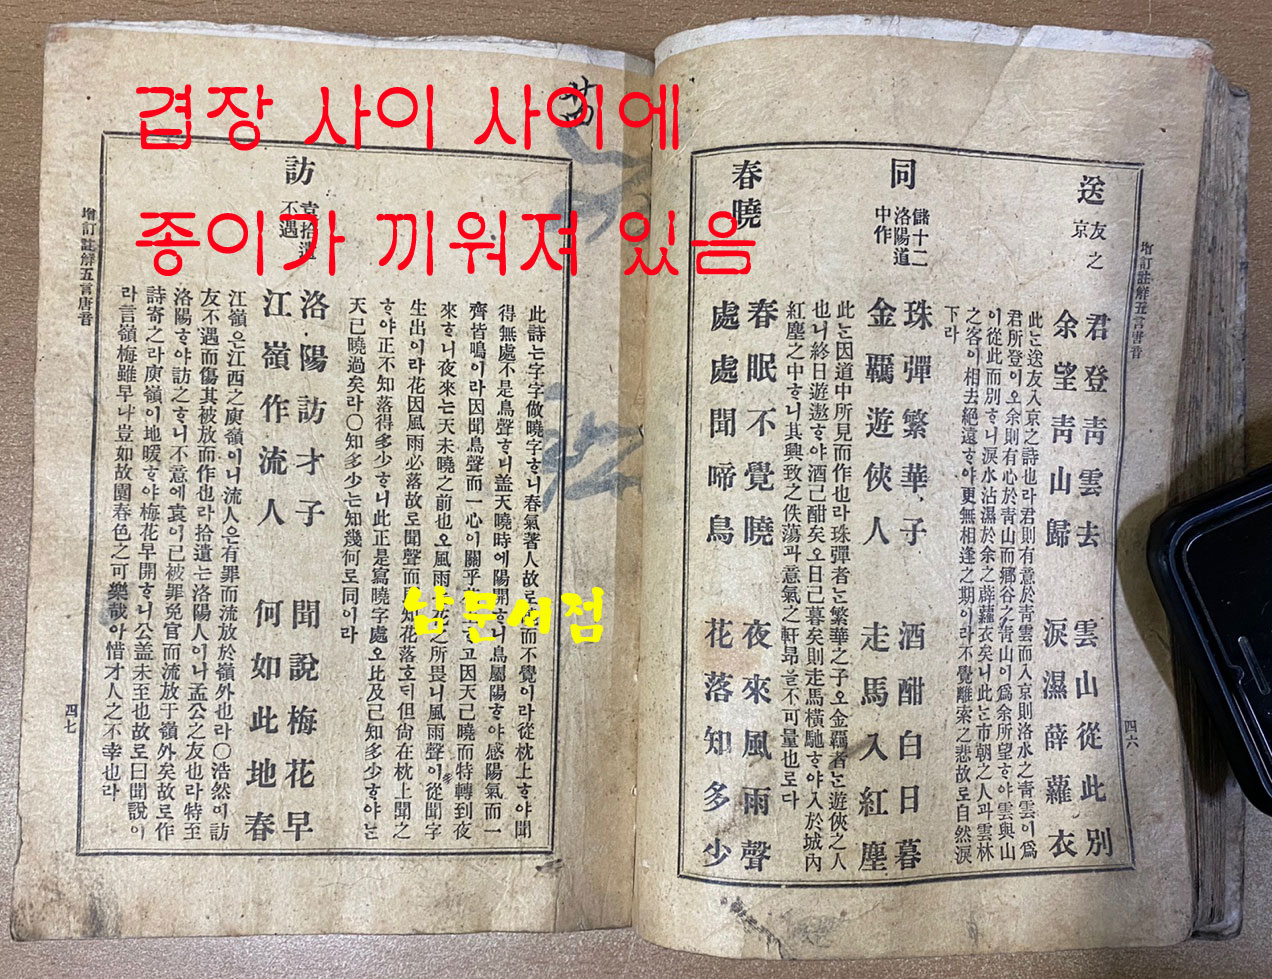 겹장 사이 사이에
종이가 끼워져 있음
남문서점
增訂註解五言唐音
四六
送
友之
京
君登靑雲去 雲山從此別
余望靑山歸 淚濕薜蘿衣
此ᄂᆞᆫ送友入京之詩也라君則有意於靑雲而入京則洛水之靑雲이爲
君所登이오余則有心於靑山而鄕谷之靑山이爲余所望ᄒᆞ야雲與山
이從此而別ᄒᆞ니淚水沾濕於余之薜蘿衣矣니此ᄂᆞᆫ市朝之人과雲林
之客이相去絕遠ᄒᆞ야更無相逢之期이라不覺離索之悲故로自然淚
下라
同
儲十二
洛陽道
中作
珠彈繁華子 酒酣白日暮
金羈遊俠人 走馬入紅塵
此ᄂᆞᆫ因道中所見而作也라珠彈者ᄂᆞᆫ繁華之子오金羈者ᄂᆞᆫ遊俠之人
也니終日遊遨ᄒᆞ야酒已酣矣오日已暮矣則走馬橫馳ᄒᆞ야入於城內
紅塵之中ᄒᆞ니其興致之佚蕩과意氣之軒昻은不可量也로다
春曉
春眠不覺曉 夜來風雨聲
處處聞啼鳥 花落知多少
此詩ᄂᆞᆫ字字倣曉字ᄒᆞ니春氣著人故로 而不覺이라從枕上ᄒᆞ야聞
得無處不是鳥聲ᄒᆞ니盖天曉時에陽開ᄒᆞ니鳥屬陽ᄒᆞ야感陽氣而一
齊皆鳴이라因聞鳥聲而一心이關乎 고因天已曉而特轉到夜
來ᄒᆞ니夜來ᄂᆞᆫ天未曉之前也오風雨 花之所畏니風雨聲이從聞字
生出이라花因風雨必落故로聞聲而 知花落호ᄃᆡ但尙在枕上聞之
ᄒᆞ야正不知落得多少ᄒᆞ니此正是寫曉字處오比及已知多少ᄒᆞ야ᄂᆞᆫ
天已曉過矣라〇知多少ᄂᆞᆫ知幾何로同이라
訪
袁拾遺
不遇
洛陽訪才子 聞說梅花早
江嶺作流人 何如此地春
江嶺은江西之庾嶺이니流人은有罪而流放於嶺外也라〇浩然이訪
友不遇而傷其被放而作也라拾遺ᄂᆞᆫ洛陽人이니孟公之友也라特至
洛陽ᄒᆞ야訪之ᄒᆞ니不意에袁이已被罪免官而流放于嶺外矣故로作
詩寄之라庾嶺이地暖ᄒᆞ야梅花早開ᄒᆞ니公盖未至也故로曰聞說이
라言嶺梅雖早나豈如故園春色之可樂哉아惜才人之不幸也라
增訂註解五言唐音
四七